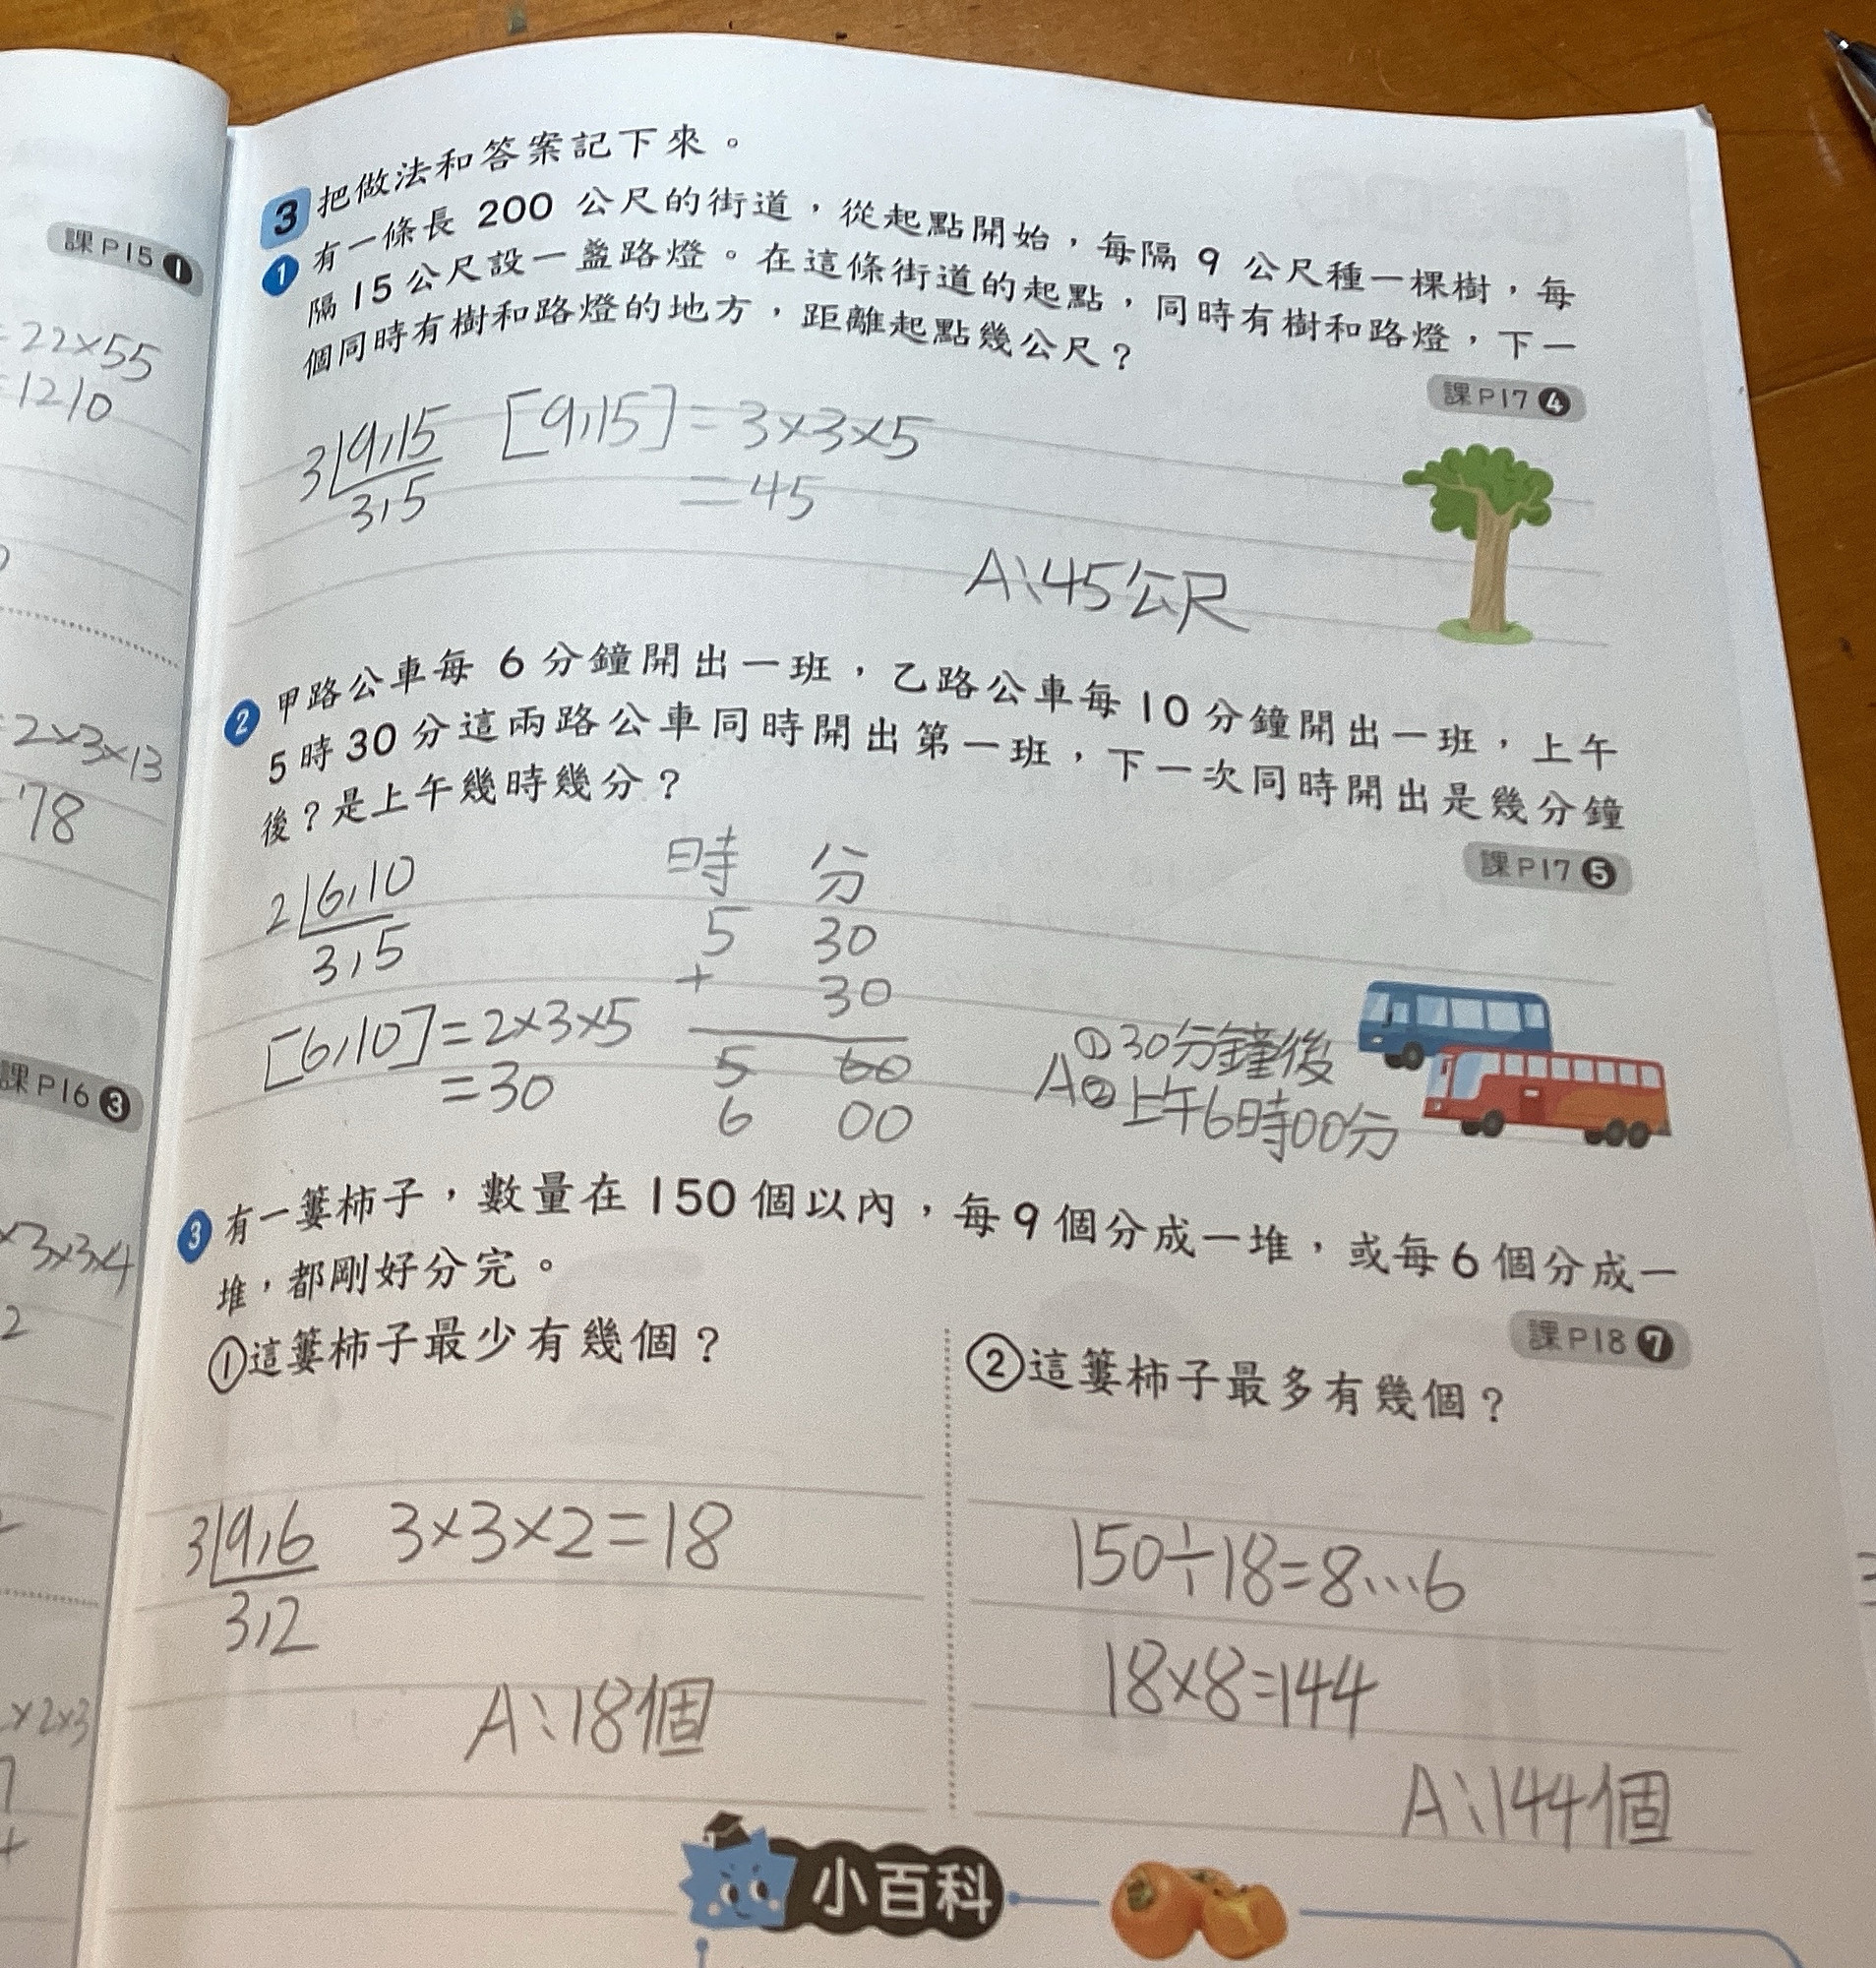 課P15❶
=22×55
=1210
=2×3×13
78
課P16❸
×3×3×4
2
×2×3
3 把做法和答案記下來。
1 有一條長 200 公尺的街道，從起點開始，每隔 9 公尺種一棵樹，每
隔 15 公尺設一盞路燈。在這條街道的起點，同時有樹和路燈，下一
個同時有樹和路燈的地方，距離起點幾公尺？
課P17❹
3 9,15 [9,15]=3×3×5
3,5 =45
A:45公尺
2 甲路公車每 6 分鐘開出一班，乙路公車每 10 分鐘開出一班，上午
5 時 30 分這兩路公車同時開出第一班，下一次同時開出是幾分鐘
後？是上午幾時幾分？
課P17❺
時 分
2 6,10
5 30
3,5
+ 30
[6,10]=2×3×5
=30
5 60
6 00
A ①30分鐘後
②上午6時00分
3 有一簍柿子，數量在 150 個以內，每 9 個分成一堆，或每 6 個分成一
堆，都剛好分完。
課P18❼
①這簍柿子最少有幾個？
3 9,6 3×3×2=18
3,2
A:18個
②這簍柿子最多有幾個？
150÷18=8…6
18×8=144
A:144個
小百科